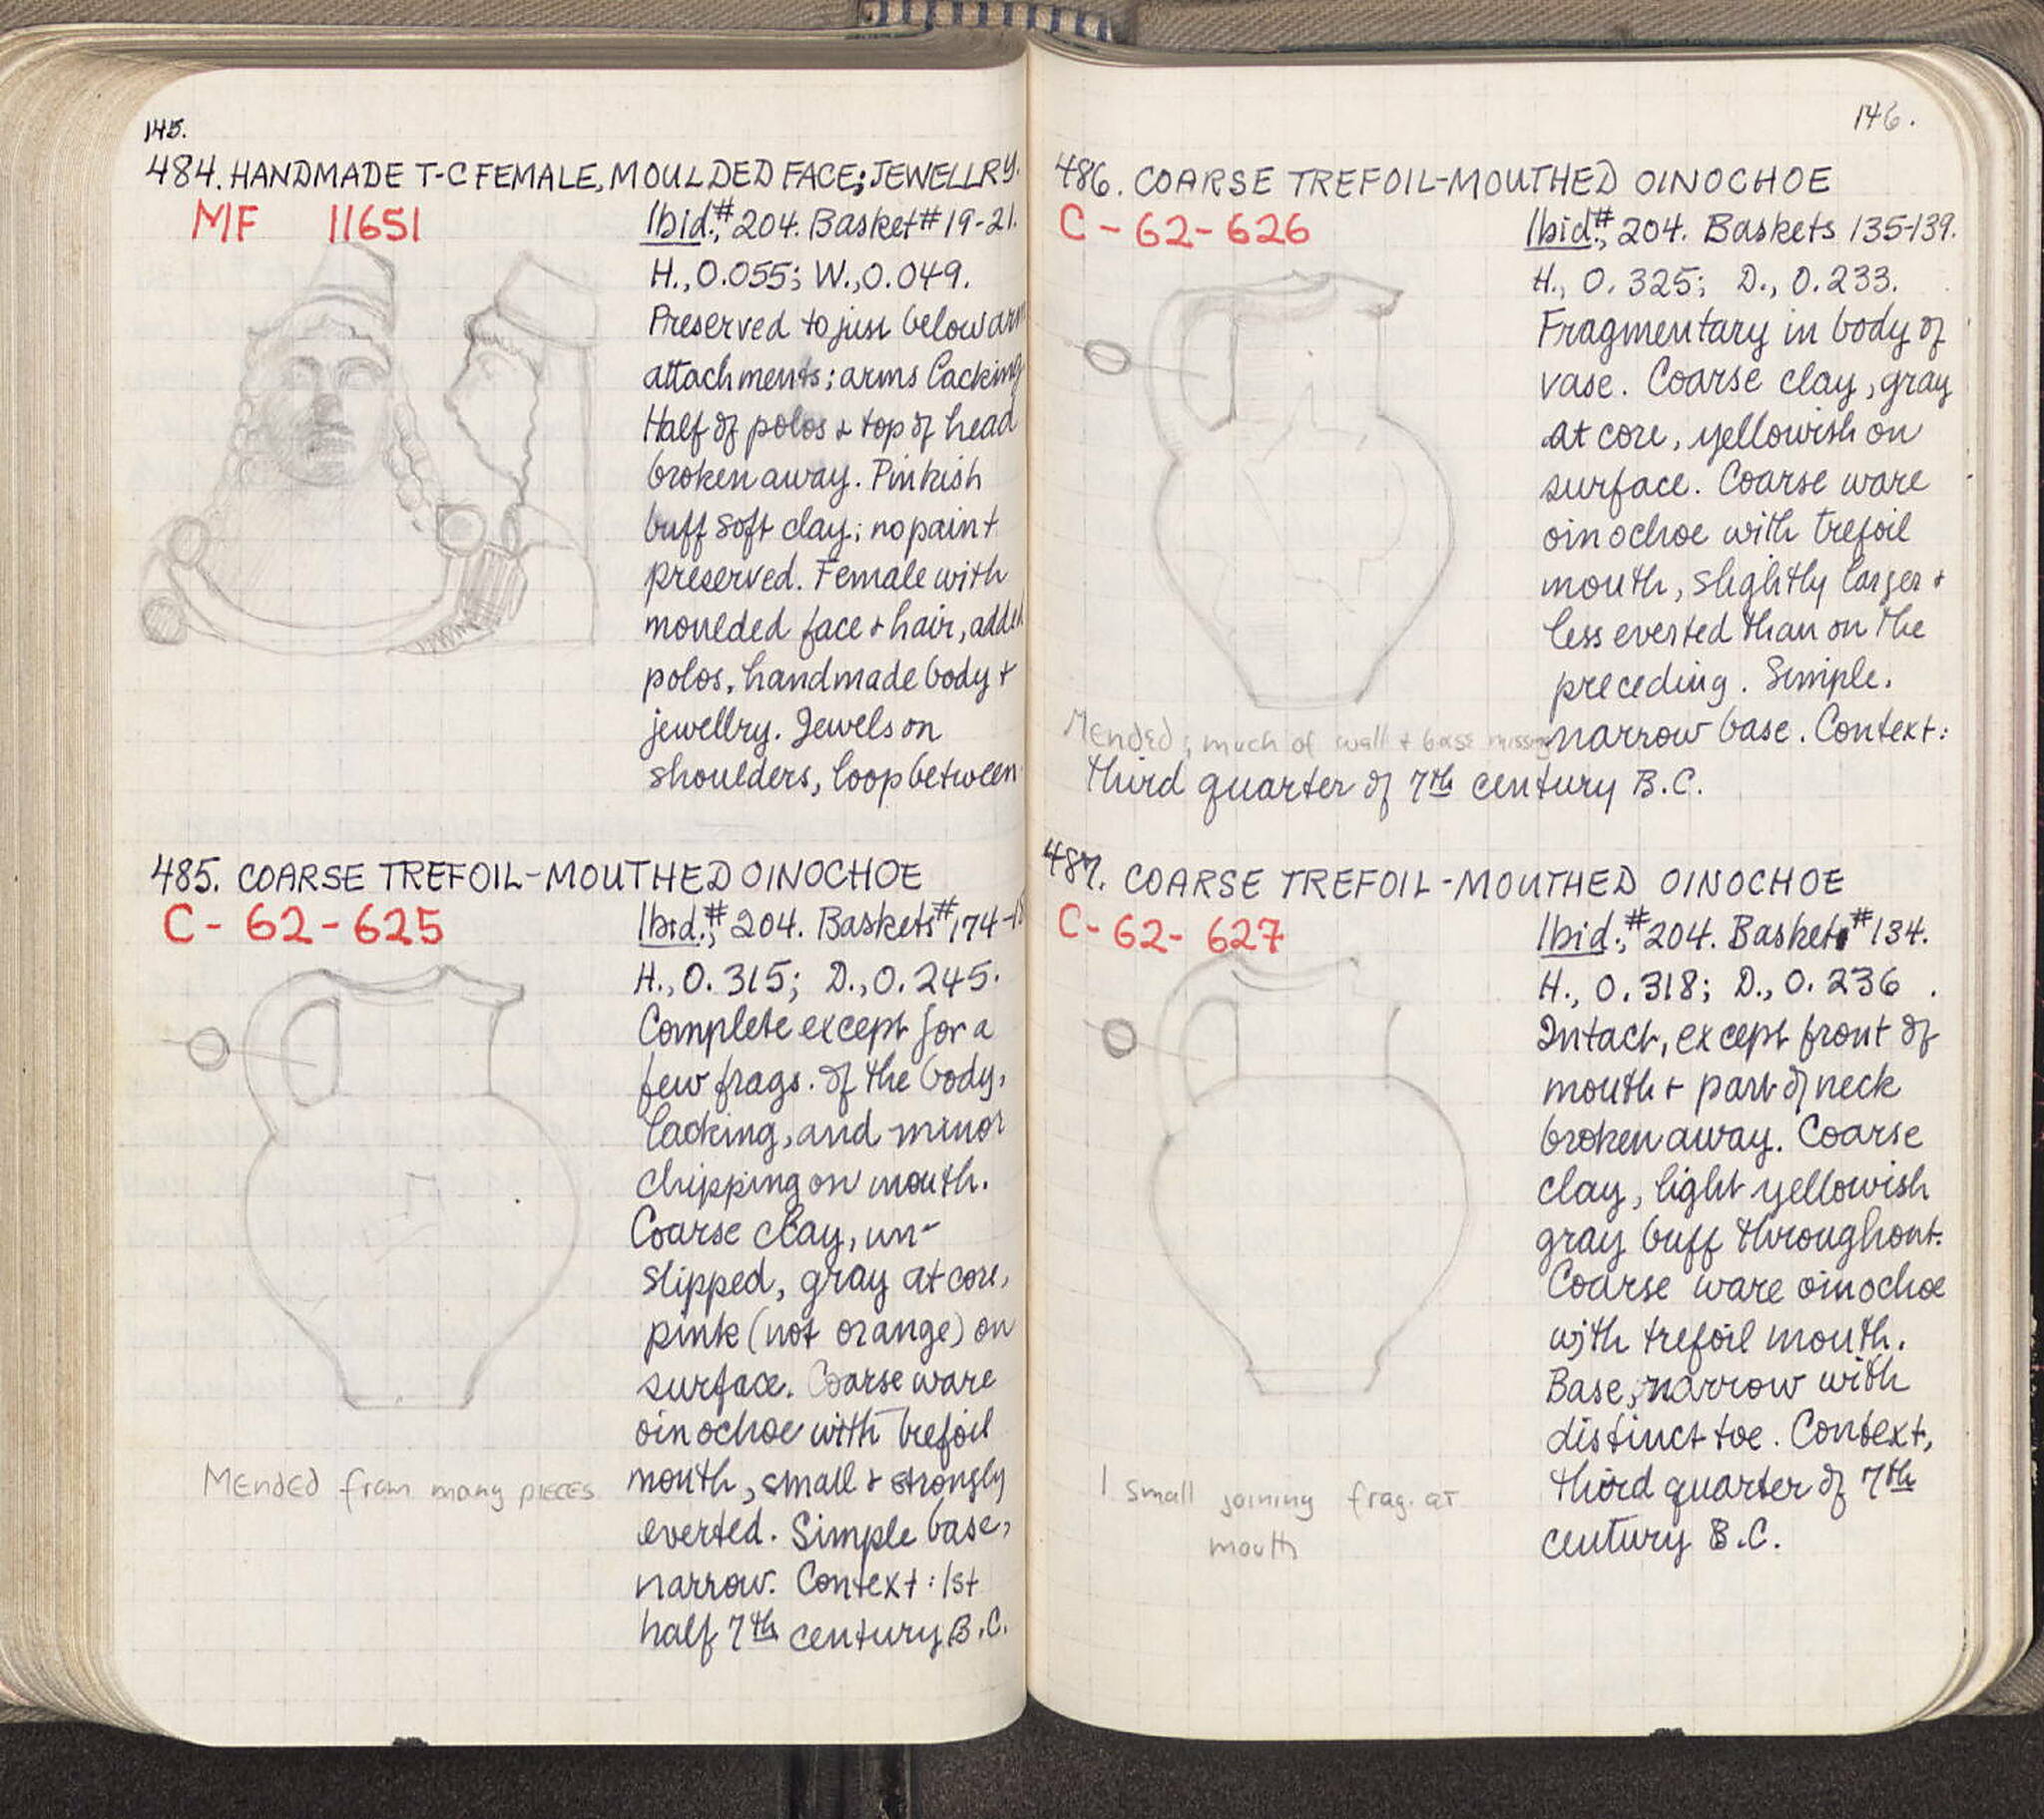 145.
484. HANDMADE T-C FEMALE, MOULDED FACE; JEWELLRY.
MF 11651
Ibid., #204. Basket #19-21.
H., 0.055; W., 0.049.
Preserved to just below arm
attachments; arms lacking
Half of polos + top of head
broken away. Pinkish
buff soft clay; no paint
preserved. Female with
moulded face + hair, added
polos, handmade body +
jewellry. Jewels on
shoulders, loop between
485. COARSE TREFOIL-MOUTHED OINOCHOE
C-62-625
Ibid., #204. Baskets #174-
H., 0.315; D., 0.245.
Complete except for a
few frags. of the body,
lacking, and minor
chipping on mouth.
Coarse clay, un-
slipped, gray at core,
pink (not orange) on
surface. Coarse ware
oinochoe with trefoil
mouth, small + strongly
everted. Simple base,
narrow. Context: 1st
half 7th century B.C.
Mended from many pieces
146.
486. COARSE TREFOIL-MOUTHED OINOCHOE
C-62-626
Ibid., #204. Baskets 135-139.
H., 0.325; D., 0.233.
Fragmentary in body of
vase. Coarse clay, gray
at core, yellowish on
surface. Coarse ware
oinochoe with trefoil
mouth, slightly larger +
less everted than on the
preceding. Simple,
narrow base. Context:
third quarter of 7th century B.C.
Mended; much of wall + base missing
487. COARSE TREFOIL-MOUTHED OINOCHOE
C-62-627
Ibid., #204. Basket #134.
H., 0.318; D., 0.236.
Intact, except front of
mouth + part of neck
broken away. Coarse
clay, light yellowish
gray buff throughout.
Coarse ware oinochoe
with trefoil mouth.
Base, narrow with
distinct toe. Context,
third quarter of 7th
century B.C.
1 small joining frag. at
mouth